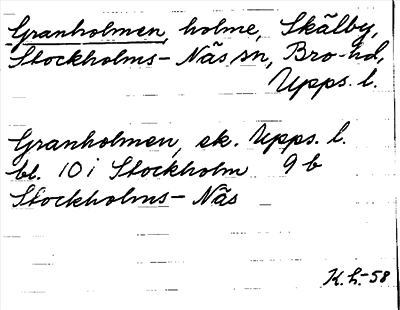 Granholmen, holme, Skälby,
Stockholms-Näs sn, Bro hd,
Upps. l.
Granholmen, ek. Upps. l.
bl. 10 i Stockholm 9 b
Stockholms-Näs
K.h.-58